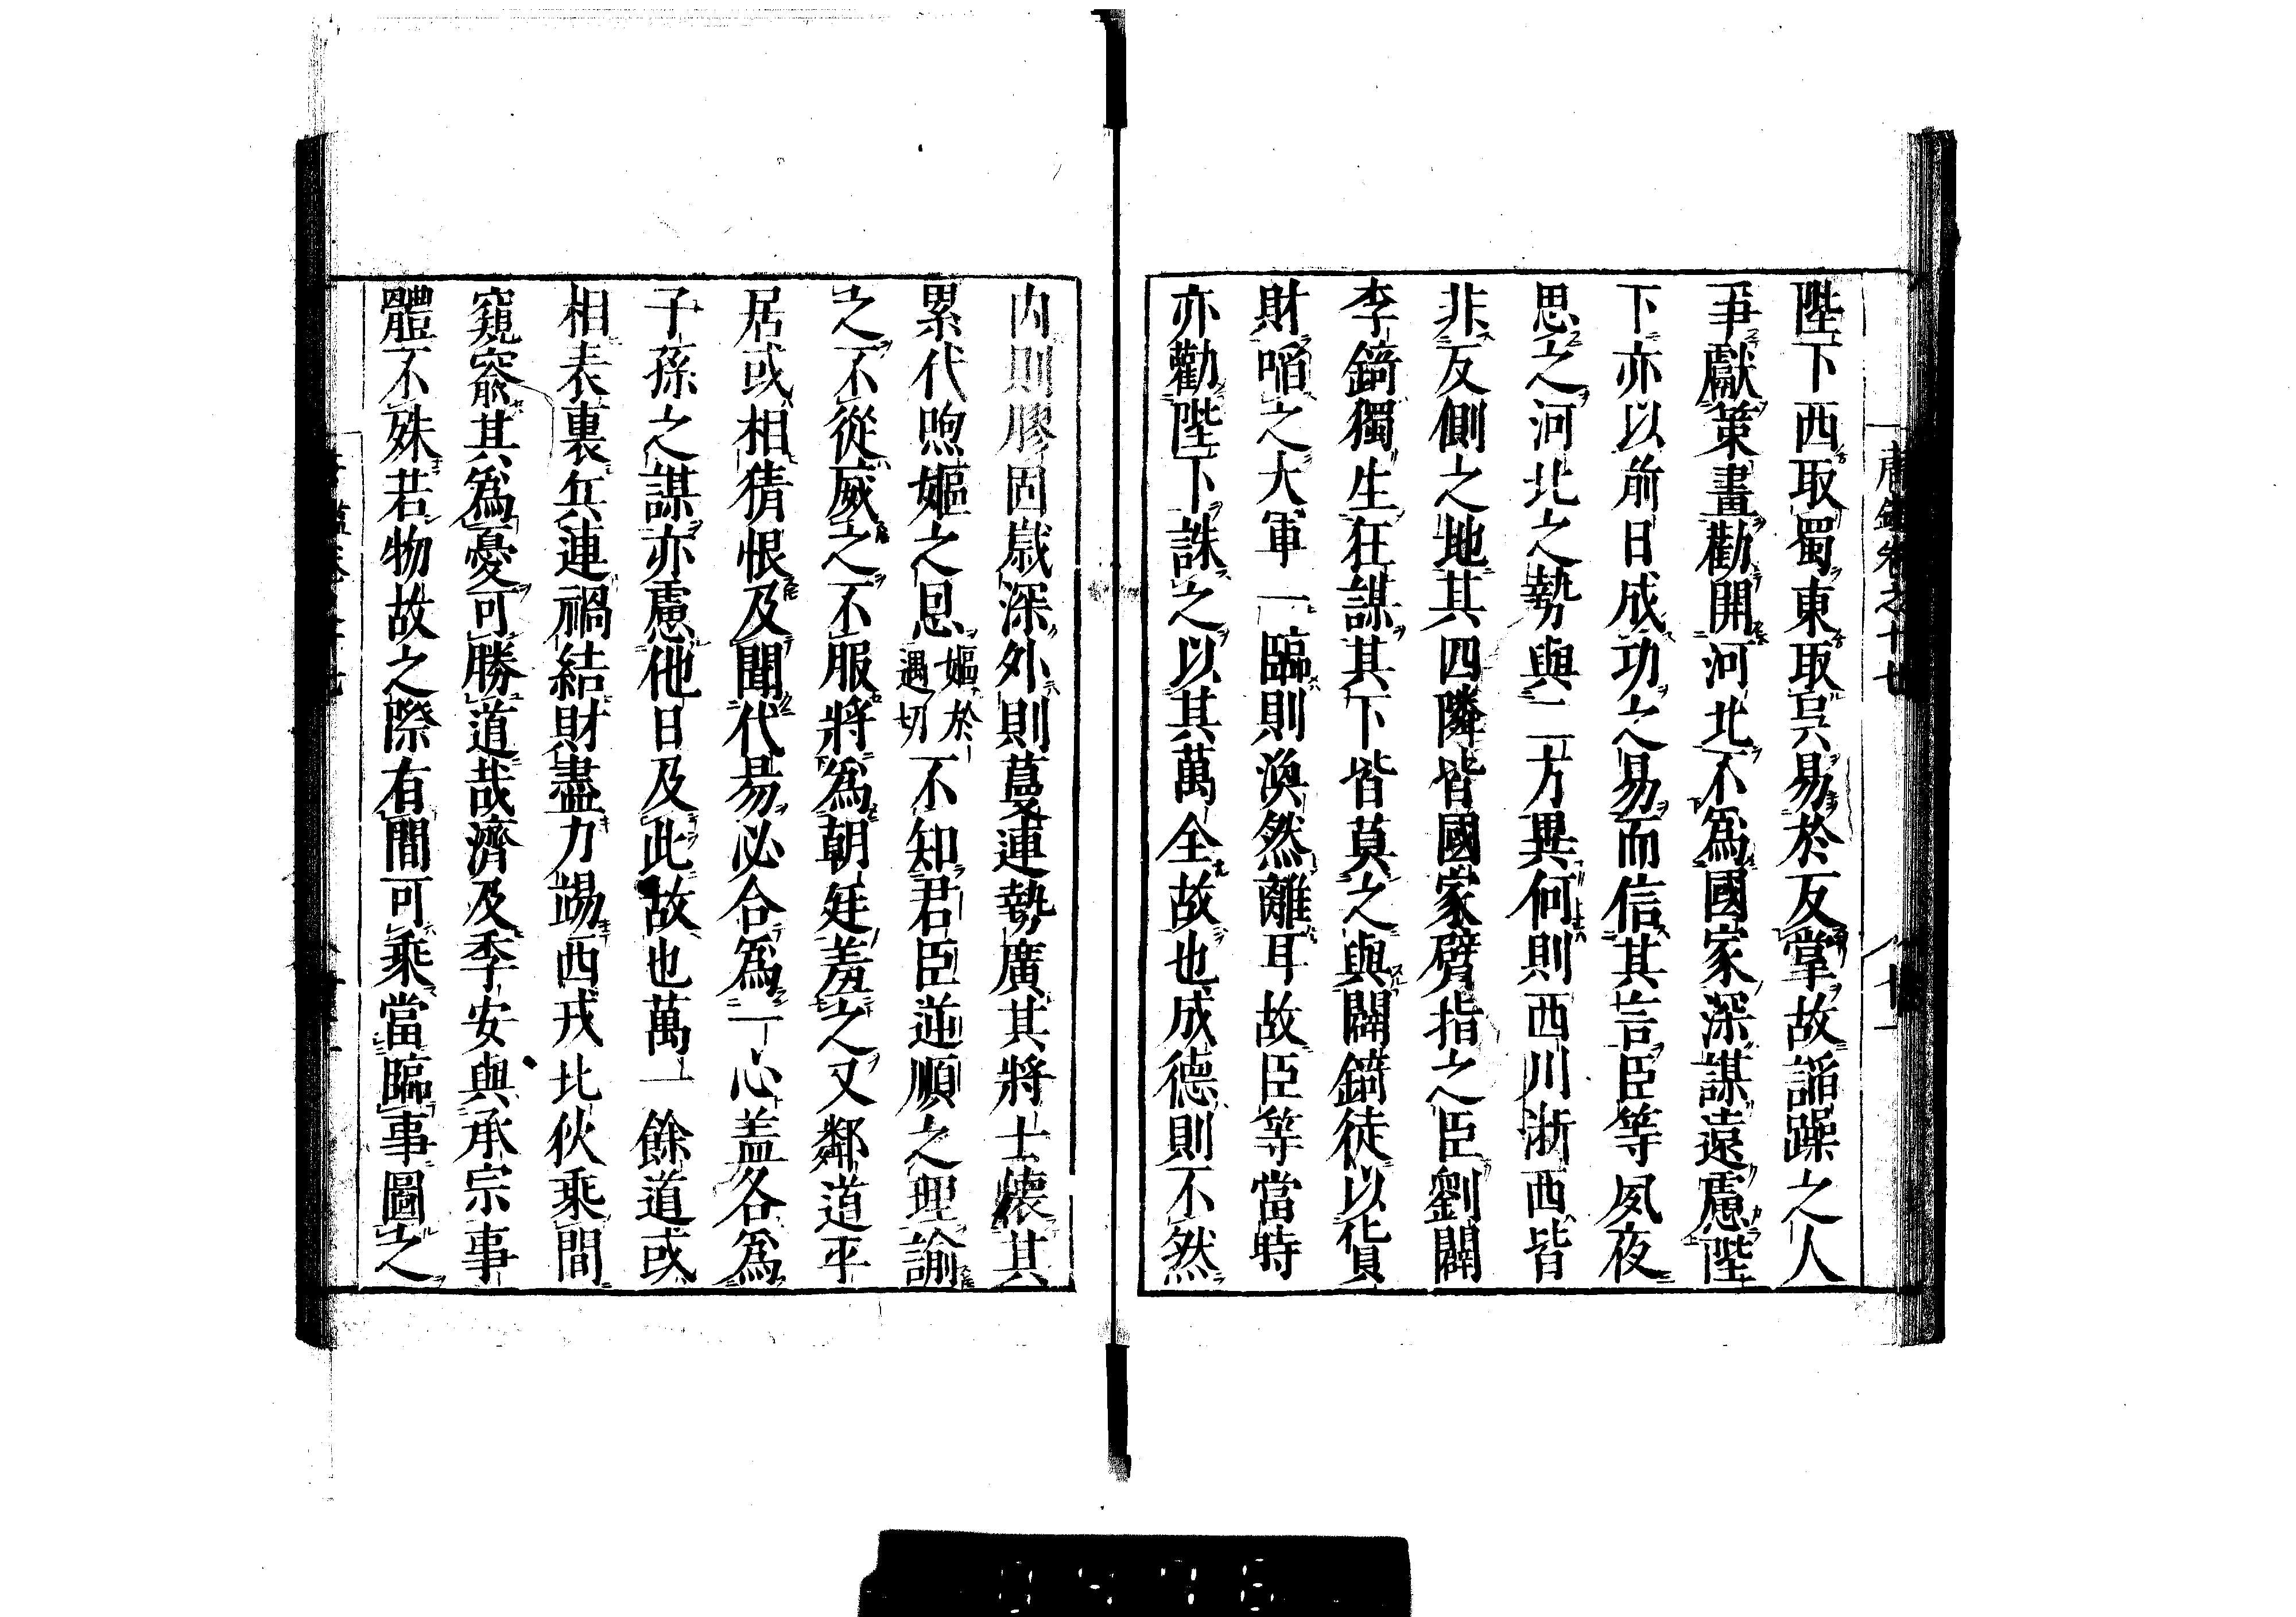 唐鑑卷之十七
陛下西取蜀東取吳易於反掌故謟躁之人
爭獻策畫勸開河北不爲國家深謀遠慮陛
下亦以前日成功之易而信其言臣等夙夜
思之河北之勢與二方異何則西川浙西皆
非反側之地其四隣皆國家臂指之臣劉闢
李錡獨生狂謀其下皆莫之與闢錡徒以貨
財啗之大軍一臨則渙然離耳故臣等當時
亦勸陛下誅之以其萬全故也成德則不然
內則膠固歲深外則蔓連勢廣其將士懷其
累代煦嫗之恩嫗於遇切不知君臣逆順之理諭
之不從威之不服將爲朝廷羞之又鄰道平
居或相猜恨及聞代易必合爲一心盖各爲
子孫之謀亦慮他日及此故也萬一餘道或
相表裏兵連禍結財盡力竭西戎北狄乘間
窺窬其爲憂可勝道哉濟及季安與承宗事
體不殊若物故之際有間可乘當臨事圖之